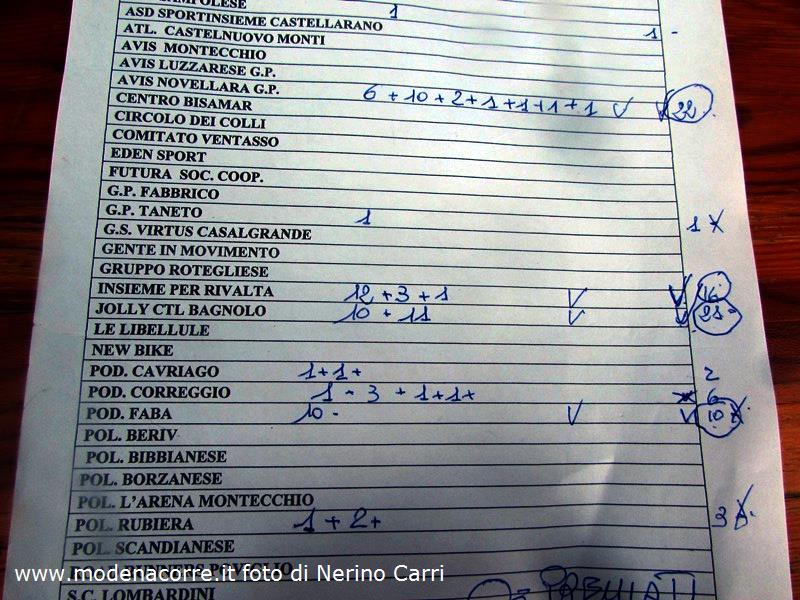 ASD SPORTINSIEME CASTELLARANO 1
ATL. CASTELNUOVO MONTI 1 -
AVIS MONTECCHIO
AVIS LUZZARESE G.P.
AVIS NOVELLARA G.P.
CENTRO BISAMAR 6 + 10 + 2 + 1 + 1 + 1 + 1 ✓ ✓ 22
CIRCOLO DEI COLLI
COMITATO VENTASSO
EDEN SPORT
FUTURA SOC. COOP.
G.P. FABBRICO
G.P. TANETO 1
G.S. VIRTUS CASALGRANDE 1 x
GENTE IN MOVIMENTO
GRUPPO ROTEGLIESE
INSIEME PER RIVALTA 12 + 3 + 1 ✓ ✓ 16
JOLLY CTL BAGNOLO 10 + 11 ✓ ✓ 21 -
LE LIBELLULE
NEW BIKE
POD. CAVRIAGO 1 + 1 + 2
POD. CORREGGIO 1 - 3 + 1 + 1 + x 6
POD. FABA 10 - ✓ ✓ 10 x
POL. BERIV
POL. BIBBIANESE
POL. BORZANESE
POL. L'ARENA MONTECCHIO
POL. RUBIERA 1 + 2 + 3
POL. SCANDIANESE
www.modenacorre.it foto di Nerino Carri
S.C. LOMBARDINI